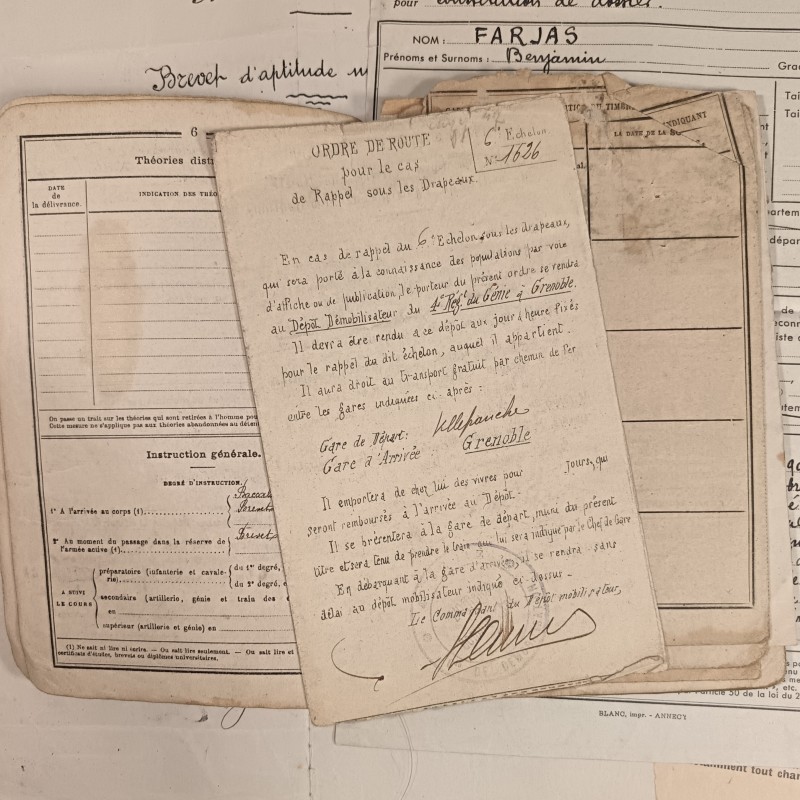 pour constitution de dossier.
NOM : FARJAS
Prénoms et Surnoms : Benjamin
Grad
Brevet d'aptitude m
Tai
Tai
6
Théories dist
DATE
de
la délivrance.
INDICATION DES THÉO
On passe un trait sur les théories qui sont retirées à l'homme pou
Cette mesure ne s'applique pas aux théories abandonnées au déten
Instruction générale.
DEGRÉ D'INSTRUCTION.
1° A l'arrivée au corps (1)
2° Au moment du passage dans la réserve de
l'armée active (1)
Brevet
A SUIVI
LE COURS
préparatoire (infanterie et cavale-
rie)
du 1er degré,
du 2e degré,
secondaire (artillerie, génie et train des
en
supérieur (artillerie et génie) en
(1) Ne sait ni lire ni écrire. — Ou sait lire seulement. — Ou sait lire et
certificats d'études, brevets ou diplômes universitaires.
ORDRE DE ROUTE
pour le cas
de Rappel sous les Drapeaux.
6e Echelon
N° 1626
En cas de rappel du 6e Echelon sous les drapeaux,
qui sera porté à la connaissance des populations par voie
d'affiche ou de publication, le porteur du présent ordre se rendra
au Dépôt Démobilisateur du 4e Régt du Génie à Grenoble.
Il devra être rendu à ce dépôt aux jour & heure fixés
pour le rappel du dit échelon, auquel il appartient.
Il aura droit au transport gratuit par chemin de fer
entre les gares indiquées ci-après :
Gare de Départ: Villefranche
Gare d'Arrivée Grenoble
Il emportera de chez lui des vivres pour jours, qui
seront remboursés à l'arrivée au Dépôt.
Il se présentera à la gare de départ, muni du présent
titre et sera tenu de prendre le train qui lui sera indiqué par le Chef de Gare
En débarquant à la gare d'arrivée il se rendra sans
délai au dépôt mobilisateur indiqué ci-dessus -
Le Commandant du Dépôt mobilisateur,
TION DU TIMBR
INDIQUANT
LA DATE DE LA
BLANC, impr. - ANNECY
l'article 30 de la loi du 2
tamment tout chan